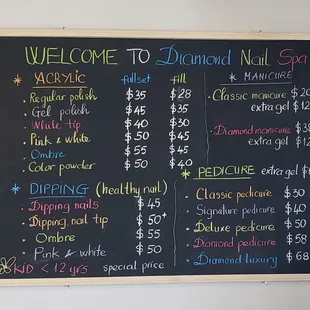 WELCOME TO Diamond Nail Spa
* ACRYLIC fullset fill
. Regular polish $35 $28
. Gel polish $45 $35
. White tip $40 $30
. Pink & white $50 $45
. Ombre $55 $45
. Color powder $50 $40
* DIPPING (healthy nail)
. Dipping nails $45
. Dipping nail tip $50+
. Ombre $55
. Pink & white $50
KID < 12 yrs special price
* MANICURE
. Classic manicure $20
extra gel $12
. Diamond manicure $38
extra gel $12
* PEDICURE extra gel $
. Classic pedicure $30
. Signature pedicure $40
. Deluxe pedicure $50
. Diamond pedicure $58
. Diamond luxury $68